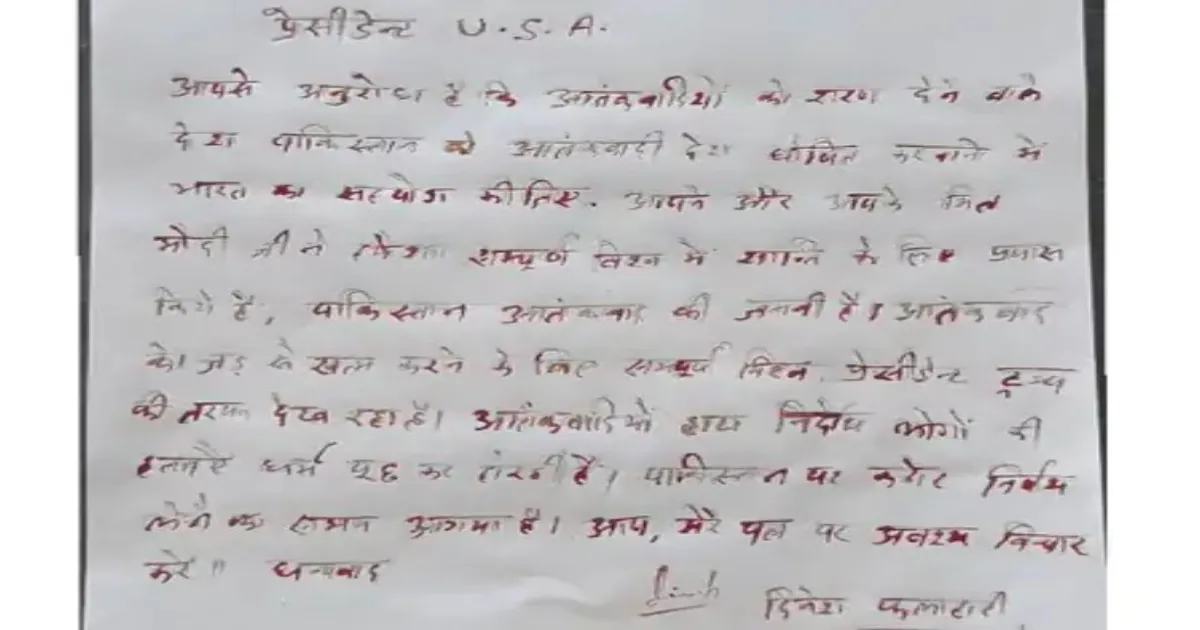 प्रेसीडेन्ट U.S.A.
आपसे अनुरोध है कि आतंकवादियों को शरण देने वाले
देश पाकिस्तान को आतंकवादी देश घोषित करवाने में
भारत का सहयोग कीजिए. आपने और आपके मित्र
मोदी जी ने हमेशा सम्पूर्ण विश्व में शान्ति के लिए प्रयास
किये है, पाकिस्तान आतंकवाद की जननी है। आतंकवाद
को जड़ से खत्म करने के लिए सम्पूर्ण विश्व प्रेसीडेन्ट ट्रम्प
की तरफ देख रहा है। आतंकवादियों द्वारा निर्दोष लोगों की
धर्म पूछ कर है। पाकिस्तान पर कठोर निर्णय
लेने का समय आगया है। आप, मेरे पत्र पर अवश्य विचार
करें॥ धन्यवाद
दिनेश फलाहारी